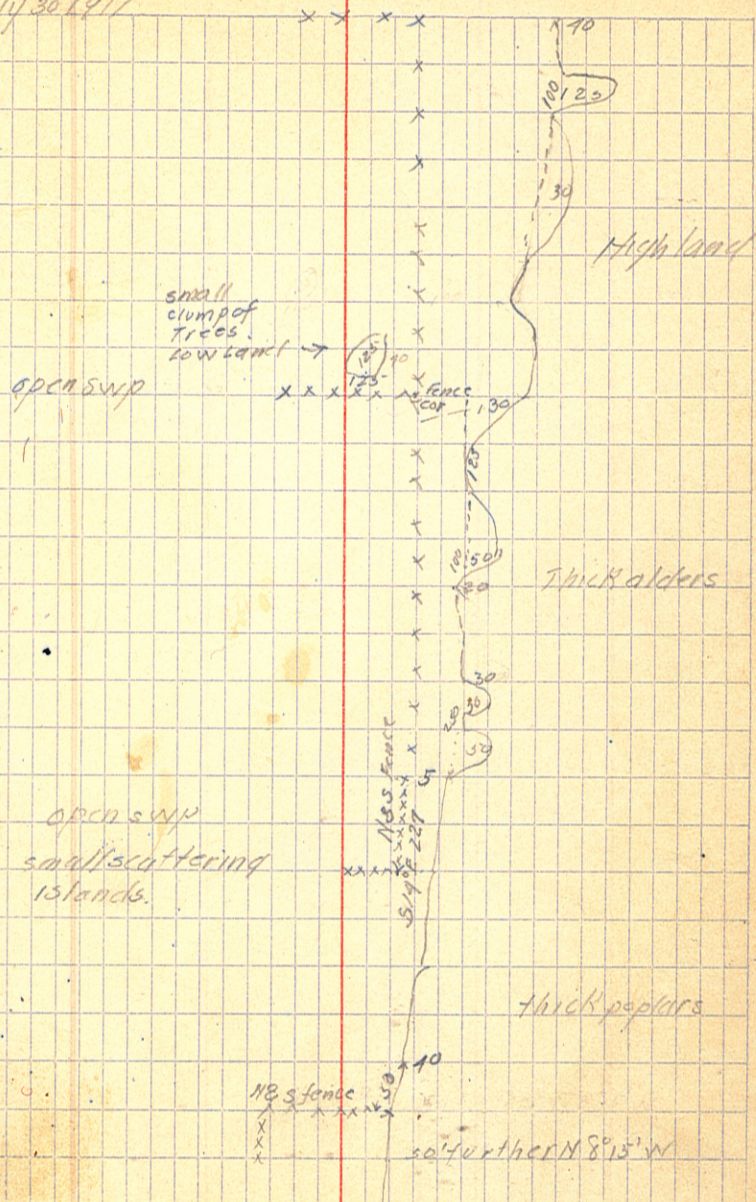 30 1917
40
100
125
30
High land
small
clump of
Trees.
Low Land →
125
40
125
open swp
Fence
cor
130
125
100
50
Thick alders
30
30
250
50
5
N&S Fence
open swp
small scattering
Islands.
S 19° E 227
thick poplars
40
50
N&S fence
50' further N 8° 15' W